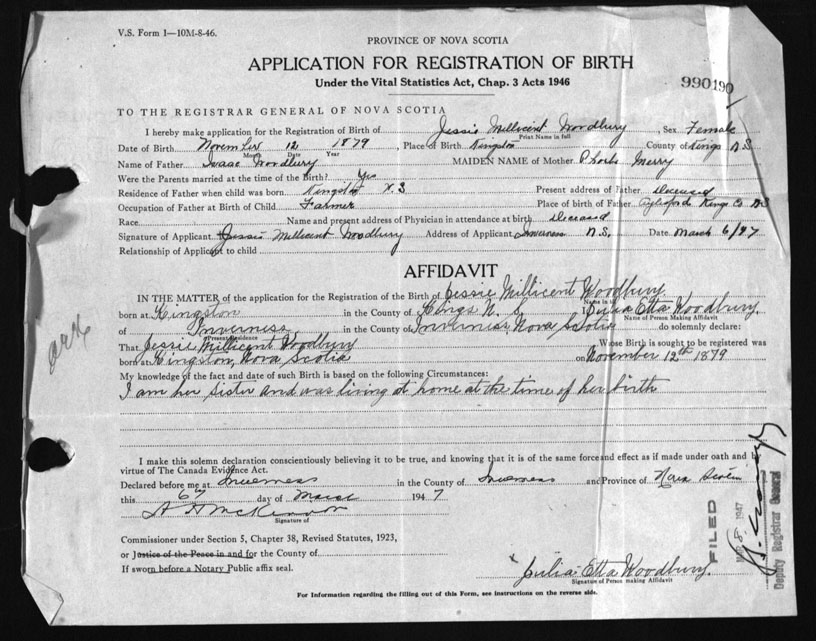 V.S. Form 1—10M-8-46.
PROVINCE OF NOVA SCOTIA
APPLICATION FOR REGISTRATION OF BIRTH
Under the Vital Statistics Act, Chap. 3 Acts 1946
990190
TO THE REGISTRAR GENERAL OF NOVA SCOTIA
I hereby make application for the Registration of Birth of Jessie Millicent Woodbury, Sex Female
Print Name in full
Date of Birth November 12 1879, Place of Birth Kingston County of Kings N S
Month Date Year
Name of Father Isaac Woodbury MAIDEN NAME of Mother Merry
Were the Parents married at the time of the Birth? Yes
Residence of Father when child was born Kingston N S Present address of Father deceased
Occupation of Father at Birth of Child Farmer Place of birth of Father Aylesford Kings Co NS
Race Name and present address of Physician in attendance at birth Deceased
Signature of Applicant Jessie Millicent Woodbury Address of Applicant Inverness N.S. Date March 6/47
Relationship of Applicant to child
AFFIDAVIT
IN THE MATTER of the application for the Registration of Birth of Jessie Millicent Woodbury
Name in full
born at Kingston in the County of Kings N. S. I Julia Etta Woodbury,
Name of Person Making Affidavit
of Inverness in the County of Inverness Nova Scotia do solemnly declare:
Present Residence
That Jessie Millicent Woodbury Whose Birth is sought to be registered was
born at Kingston, Nova Scotia on November 12th 1879
My knowledge of the fact and date of such Birth is based on the following Circumstances:
I am her sister and was living at home at the time of her birth
I make this solemn declaration conscientiously believing it to be true, and knowing that it is of the same force and effect as if made under oath and by
virtue of The Canada Evidence Act.
Declared before me at Inverness in the County of Inverness and Province of Nova Scotia
this 6th day of March 1947
Signature of
Commissioner under Section 5, Chapter 38, Revised Statutes, 1923,
or Justice of the Peace in and for the County of
If sworn before a Notary Public affix seal.
Julia Etta Woodbury.
Signature of Person making Affidavit
For Information regarding the filling out of this Form, see instructions on the reverse side.
FILED
MAR 8. 1947
Deputy Registrar General